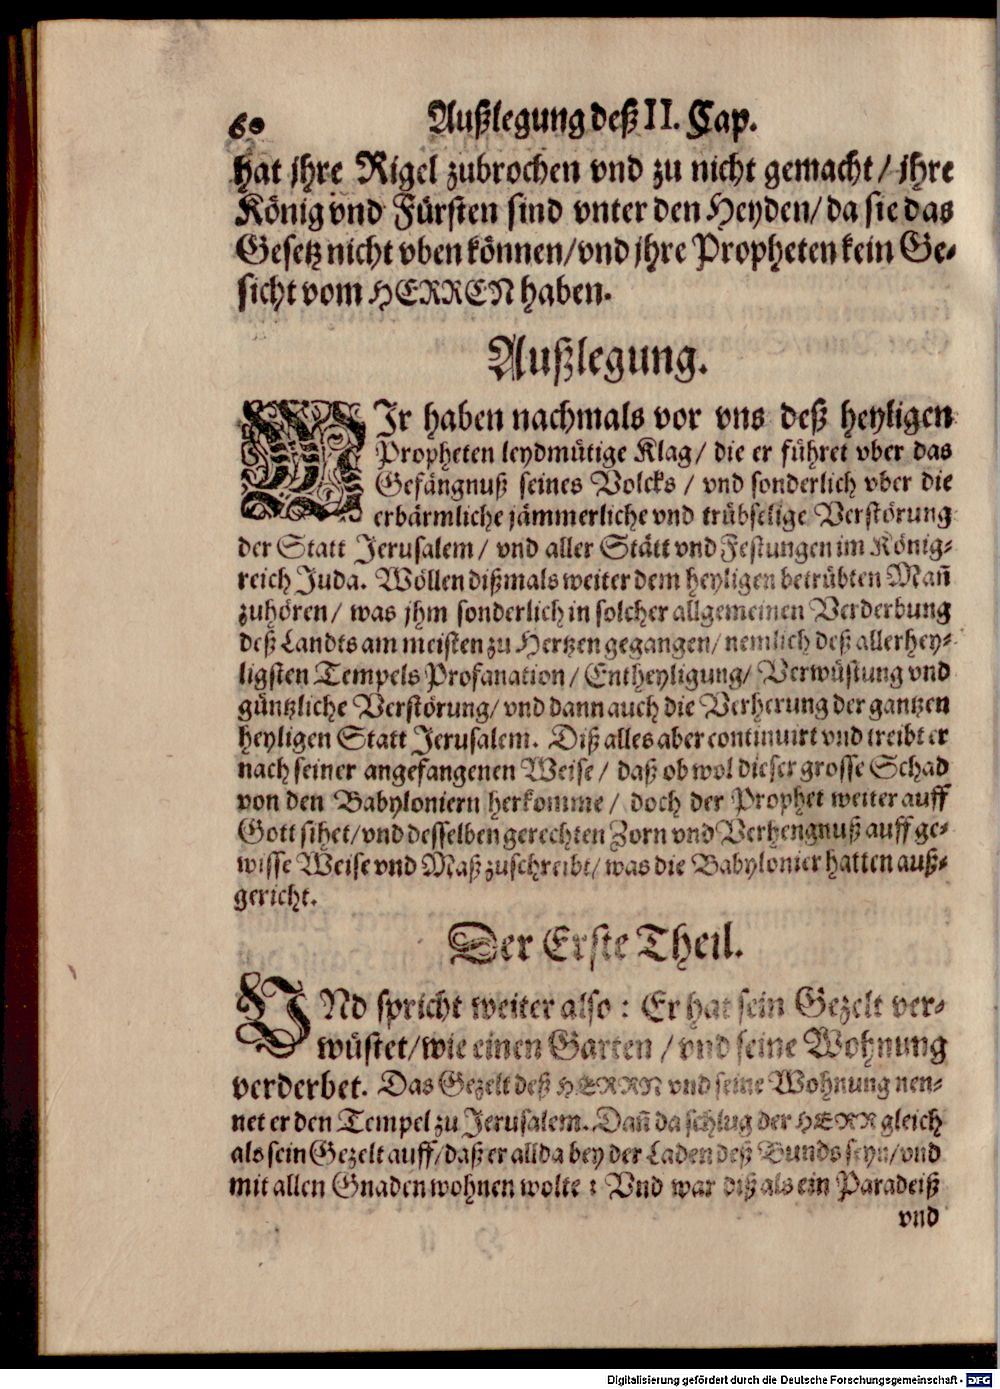 60 Außlegung deß II. Cap.
hat jhre Rigel zubrochen vnd zu nicht gemacht / jhre
König vnd Fürsten sind vnter den Heyden / da sie das
Gesetz nicht vben können / vnd jhre Propheten kein Ge-
sicht vom HERREN haben.
Außlegung.
WJr haben nachmals vor vns deß heyligen
Propheten leydmütige Klag / die er führet vber das
Gefängnuß seines Volcks / vnd sonderlich vber die
erbärmliche jämmerliche vnd trübselige Verstörung
der Statt Jerusalem / vnd aller Stätt vnd Festungen im König-
reich Juda. Wöllen dißmals weiter dem heyligen betrübten Mañ
zuhören / was jhm sonderlich in solcher allgemeinen Verderbung
deß Landts am meisten zu Hertzen gegangen / nemlich deß allerhey-
ligsten Tempels Profanation / Entheyligung / Verwüstung vnd
güntzliche Verstörung / vnd dann auch die Verherung der gantzen
heyligen Statt Jerusalem. Diß alles aber continuirt vnd treibt er
nach seiner angefangenen Weise / daß ob wol dieser grosse Schad
von den Babyloniern herkomme / doch der Prophet weiter auff
Gott sihet / vnd desselben gerechten Zorn vnd Verhengnuß auff ge-
wisse Weise vnd Maß zuschreibt / was die Babylonier hatten auß-
gericht.
Der Erste Theil.
VNd spricht weiter also : Er hat sein Gezelt ver-
wüstet / wie einen Garten / vnd seine Wohnung
verderbet. Das Gezelt deß HERRN vnd seine Wohnung nen-
net er den Tempel zu Jerusalem. Dañ da schlug der HERR gleich
als sein Gezelt auff / daß er allda bey der Laden deß Bunds seyn / vnd
mit allen Gnaden wohnen wolte : Vnd war diß als ein Paradeiß
vnd
Digitalisierung gefördert durch die Deutsche Forschungsgemeinschaft - DFG